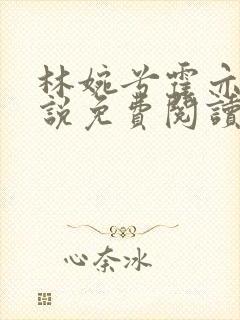 林婉兮霍亦
說免費閱讀
心奈冰